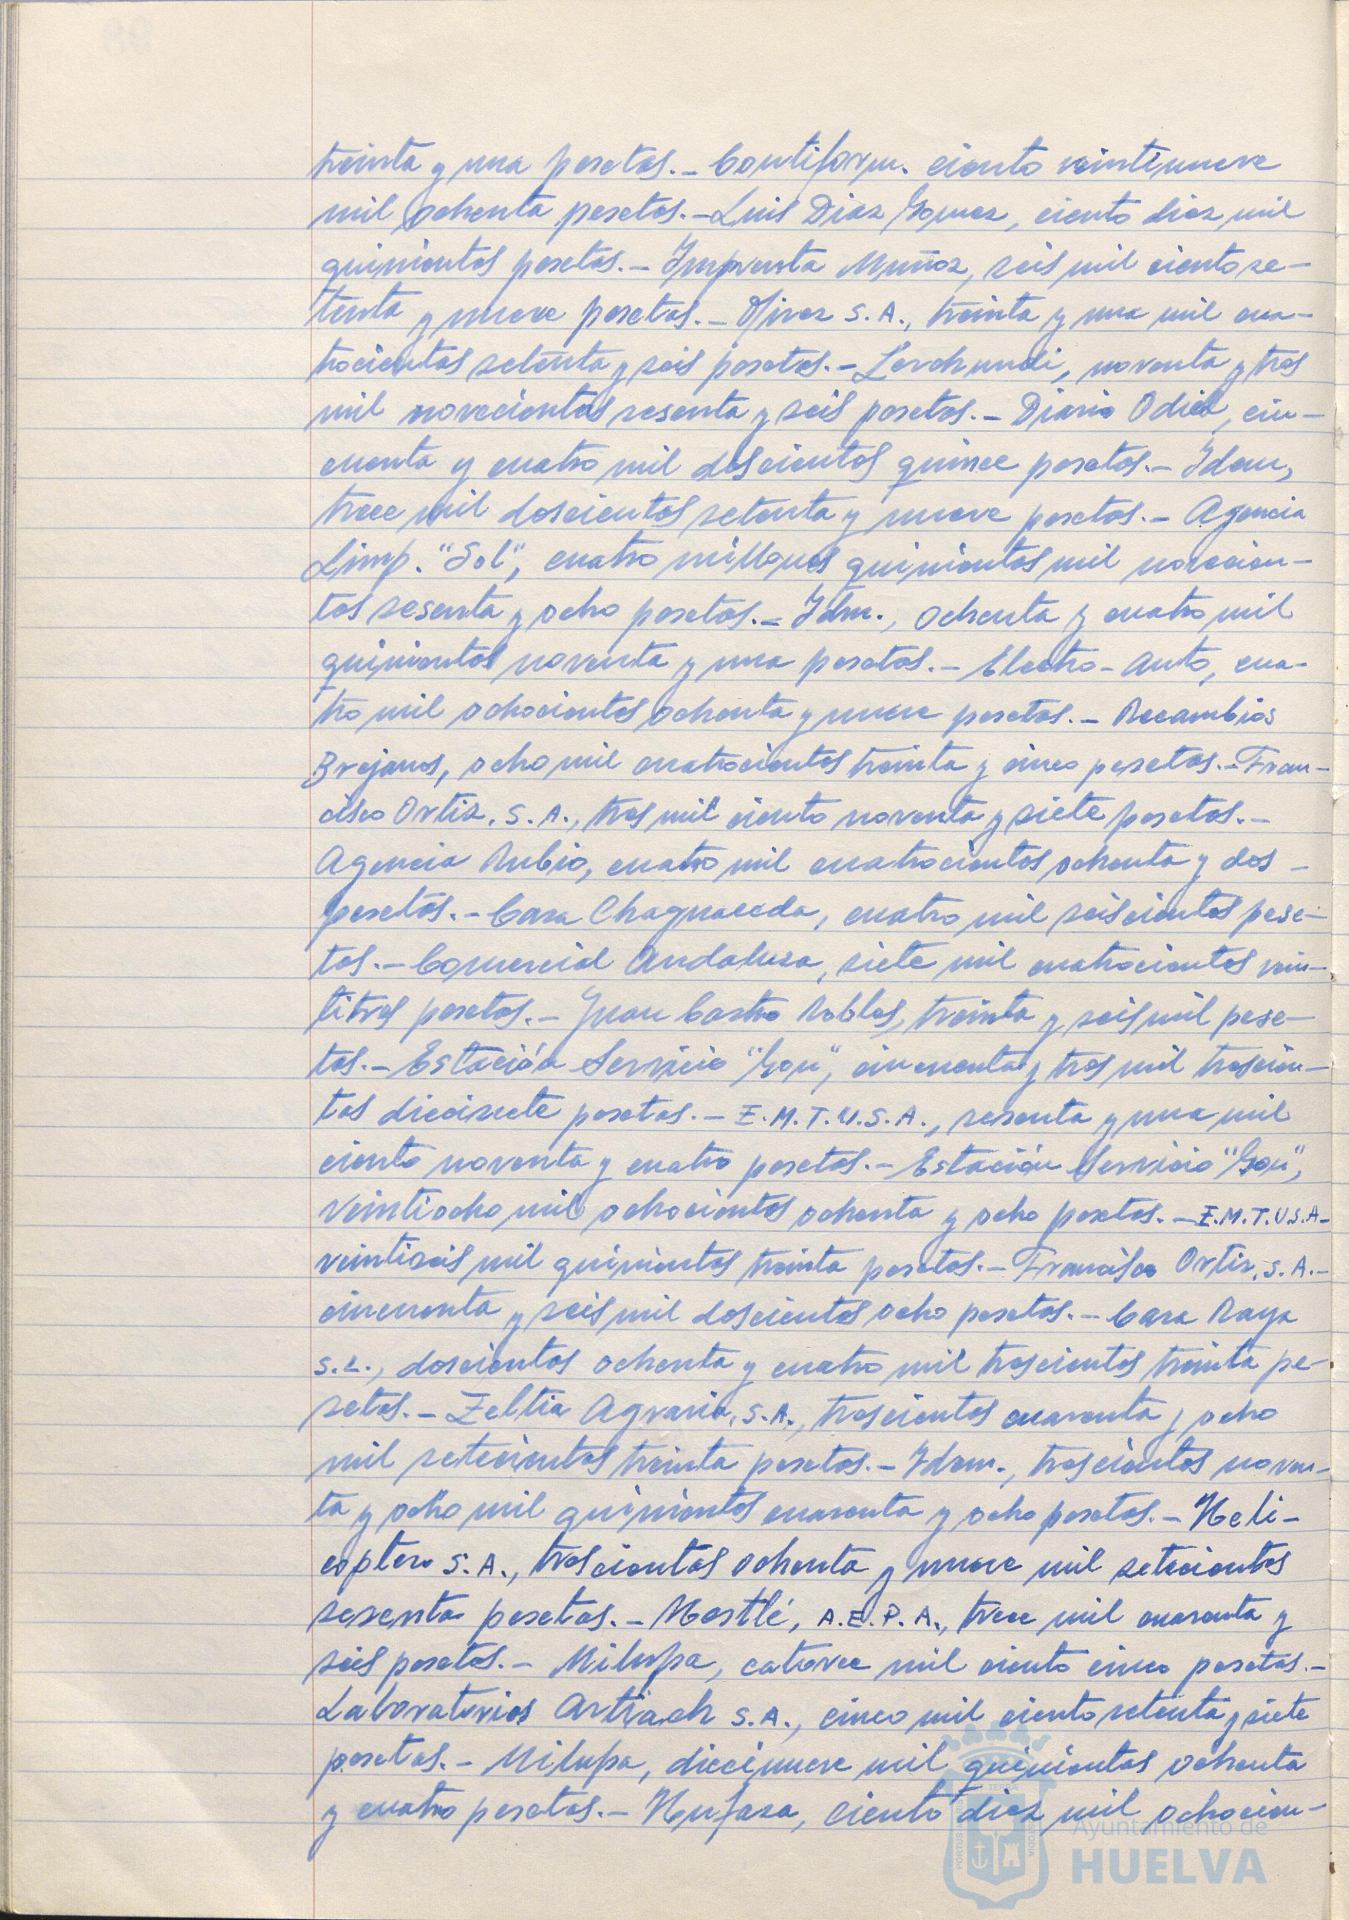 treinta y una pesetas.- Contiform. ciento veintinueve
mil ochenta pesetas.- Luis Diaz Gomez, ciento diez mil
quinientas pesetas.- Imprenta Muñoz, seis mil ciento se-
tenta y nueve pesetas.- Ofives S.A., treinta y una mil cua-
trocientas setenta y seis pesetas.- Lerchundi, noventa y tres
mil novecientas sesenta y seis pesetas.- Diario Odiel, cin-
cuenta y cuatro mil doscientos quince pesetas.- Idem,
trece mil doscientas setenta y nueve pesetas.- Agencia
Limp. "Sol", cuatro millones quinientas mil novecien-
tas sesenta y ocho pesetas.- Idm., ochenta y cuatro mil
quinientas noventa y una pesetas.- Electro-Auto, cua-
tro mil ochocientas ochenta y nueve pesetas.- Recambios
Brejanos, ocho mil cuatrocientas treinta y cinco pesetas.- Fran-
cisco Ortiz, S.A., tres mil ciento noventa y siete pesetas.-
Agencia Rubio, cuatro mil cuatrocientas ochenta y dos -
pesetas.- Casa Chaguaceda, cuatro mil seiscientas pese-
tas.- Comercial Andaluza, siete mil cuatrocientas vein-
titres pesetas.- Juan Castro Robles, treinta y seis mil pese-
tas.- Estación Servicio "Gon", cincuenta y tres mil trescien-
tas diecisiete pesetas.- E.M.T.U.S.A., sesenta y una mil
ciento noventa y cuatro pesetas.- Estación Servicio "Gon",
veintiocho mil ochocientas ochenta y ocho pesetas.- E.M.T.U.S.A-
veintiseis mil quinientas treinta pesetas.- Francisco Ortiz, S.A.-
cincuenta y seis mil doscientas ocho pesetas.- Casa Raya
S.L., doscientas ochenta y cuatro mil trescientas treinta pe-
setas.- Zeltia Agraria, S.A., trescientas cuarenta y ocho
mil setecientas treinta pesetas.- Idem., trescientas noven-
ta y ocho mil quinientas cuarenta y ocho pesetas.- Heli-
coptero S.A., trescientas ochenta y nueve mil setecientas
sesenta pesetas.- Nestlé, A.E.P.A., trece mil cuarenta y
seis pesetas.- Milupa, catorce mil ciento cinco pesetas.-
Laboratorios Artiach S.A., cinco mil ciento setenta y siete
pesetas.- Milupa, diecinueve mil quinientas ochenta
y cuatro pesetas.- Hufasa, ciento diez mil ochocien-
Ayuntamiento de
HUELVA